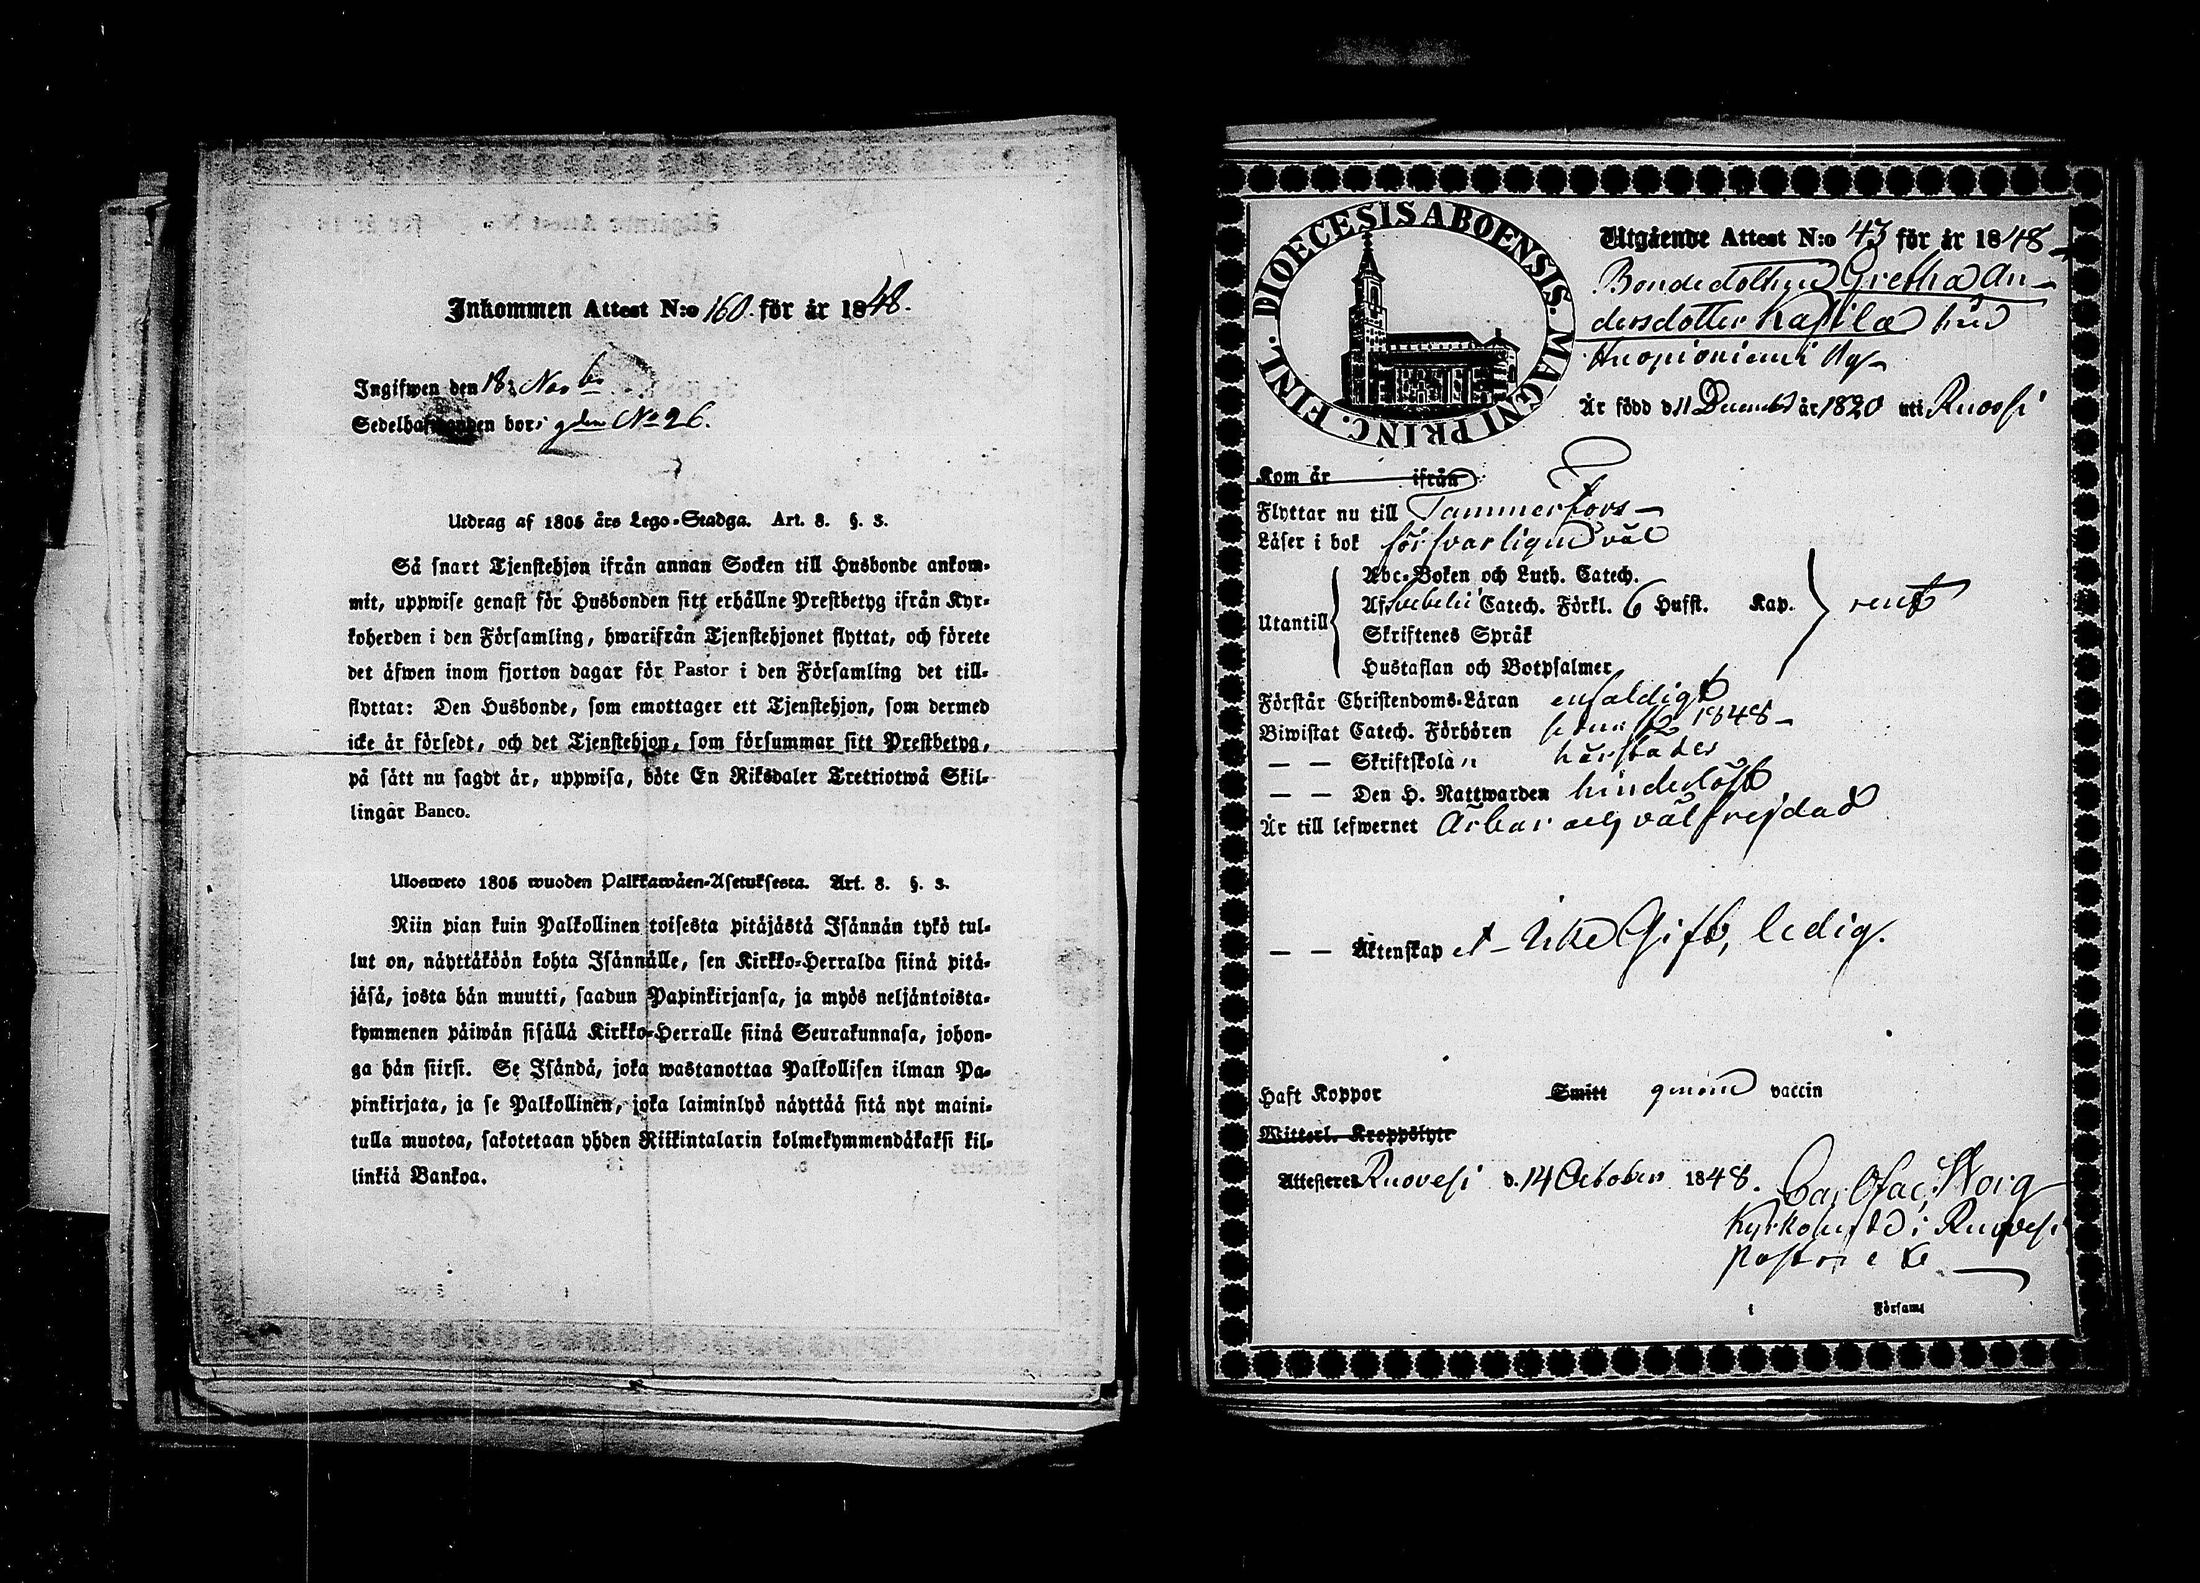 Inkommen Attest N:o 160. för år 1848.
Ingifwen den 18: Novbr
Sedelhafwanden bor i gden No 26.
Utdrag af 1805 års Lego-Stadga. Art. 8. §. 3.
Så snart Tjenstehjon ifrån annan Socken till Husbonde ankom-
mit, uppwise genast för Husbonden sitt erhållne Prestbetyg ifrån Kyr-
koherden i den Församling, hwarifrån Tjenstehjonet flyttat, och förete
det äfwen inom fjorton dagar för Pastor i den Församling det till-
flyttat: Den Husbonde, som emottager ett Tjenstehjon, som dermed
icke är försedt, och det Tjenstehjon, som försummar sitt Prestbetyg,
på sätt nu sagdt är, uppwisa, böte En Riksdaler Tretriotwå Skil-
lingar Banco.
Ulosweto 1805 wuoden Palkkawäen-Asetuksesta. Art. 8. §. 3.
Niin pian kuin Palkollinen toisesta pitäjästä Isännän tykö tul-
lut on, näyttäköön kohta Isännälle, sen Kirkko-Herralda siinä pitä-
jäsä, josta hän muutti, saadun Papinkirjansa, ja myös neljäntoista-
kymmenen päiwän sisällä Kirkko-Herralle siinä Seurakunnasa, johon-
ga hän siirsi. Se Isändä, joka wastanottaa Palkollisen ilman Pa-
pinkirjata, ja se Palkollinen, joka laiminlyö näyttää sitä nyt maini-
tulla muotoa, sakotetaan yhden Riikintalarin kolmekymmendäkaksi kil-
linkiä Bankoa.
DIOECESIS ABOENSIS. MAGNI PRINC. FINL.
Utgående Attest N:o 43 för år 1848
Bondedottren Gretha An-
dersdotter Kaſila från
Huopioniemi By
Är född d 11 December år 1820 uti Ruovesi
Kom år ifrån
Flyttar nu till Tammerfors
Läser i bok försvarligen väl
Abc-Boken och Luth. Catech.
Utantill Af Svebelii Catech. Förkl. 6 Hufst. Kap. rent
Skriftenes Språk
Hustaflan och Botpsalmer
Förstår Christendoms-Läran enfaldigt
Biwistat Catech. Förhören 1848
— — Skriftskola härstädes
— — Den H. Nattwarden hinderlöst
Är till lefwernet Ärbar och väl frejdad
— — Äktenskap et Icke Gift, ledig.
Haft Koppor Smitt genom vaccin
Witterl. Kroppslyte
Attesteres Ruovesi d. 14 October 1848.
Kyrkoherde i Ruovesi
Pastor
i Församl